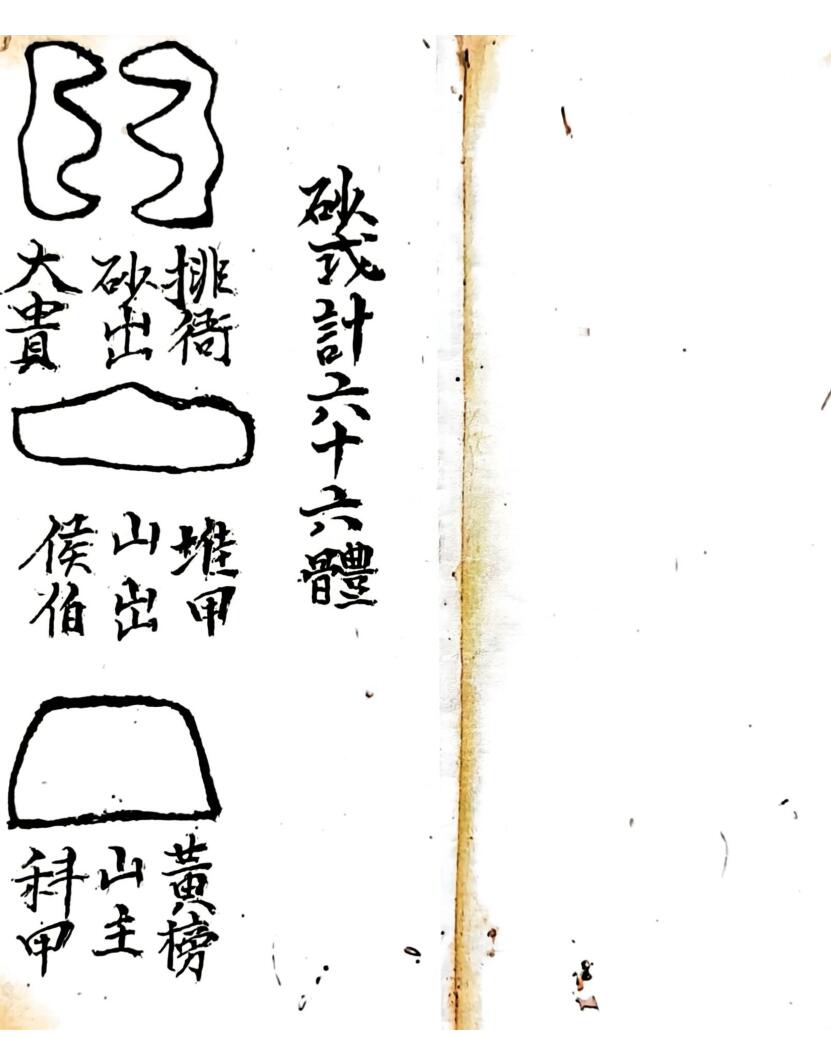 砂式計六十六體
排衙
砂出
大貴
堆甲
山出
侯伯
黃榜
山主
科甲